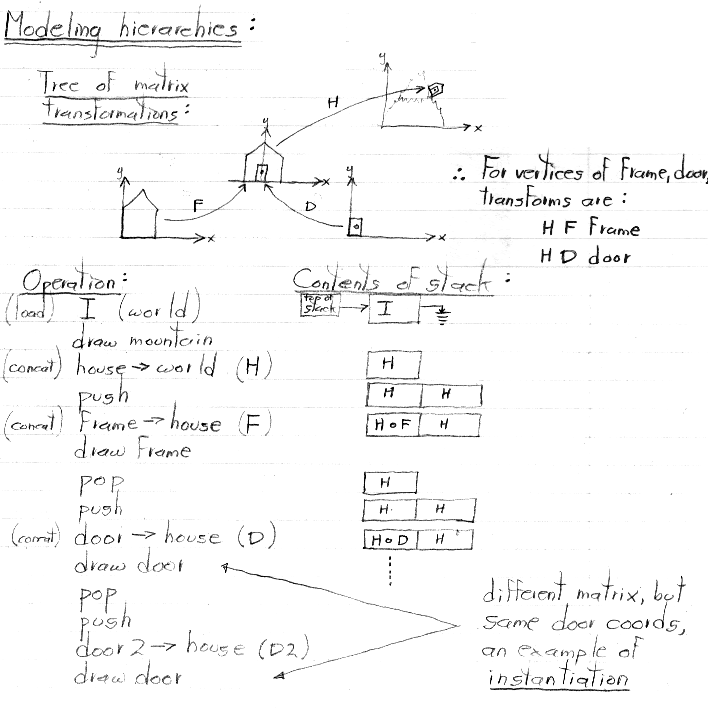 Modeling hierarchies :
Tree of matrix
transformations :
y
x
H
y
x
y
x
F
D
y
x
∴ For vertices of frame, door,
transforms are :
H F frame
H D door
Operation :
Contents of stack :
(load) I (world)
top of
stack
I
draw mountain
(concat) house → world (H)
H
push
H H
(concat) frame → house (F)
H∘F H
draw frame
pop
H
push
H H
(concat) door → house (D)
H∘D H
draw door
pop
push
door 2 → house (D2)
draw door
different matrix, but
same door coords,
an example of
instantiation